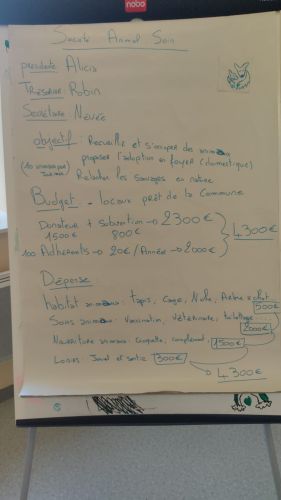 nobo
Société Animal Soin
présidente Alicia
Trésorier Robin
Secrétaire Névée
objectif : Recueillir et s'occuper des animaux
proposer l'adoption en foyer (domestique)
Relacher les sauvages en nature
Budget - locaux prêt de la Commune
Donateur + subvention → 2300€
1500€ 800€
4300€
100 Adhérents → 20€/Année → 2000€
Dépense
habitat animaux : tapis, cage, Niche, Arbre à chat
500€
Soins animaux : Vaccination, Vétérinaire, toilettage
2000€
Nourriture animaux : Croquette, complément, 1500€
Loisirs Jouet et sortie 300€
4300€